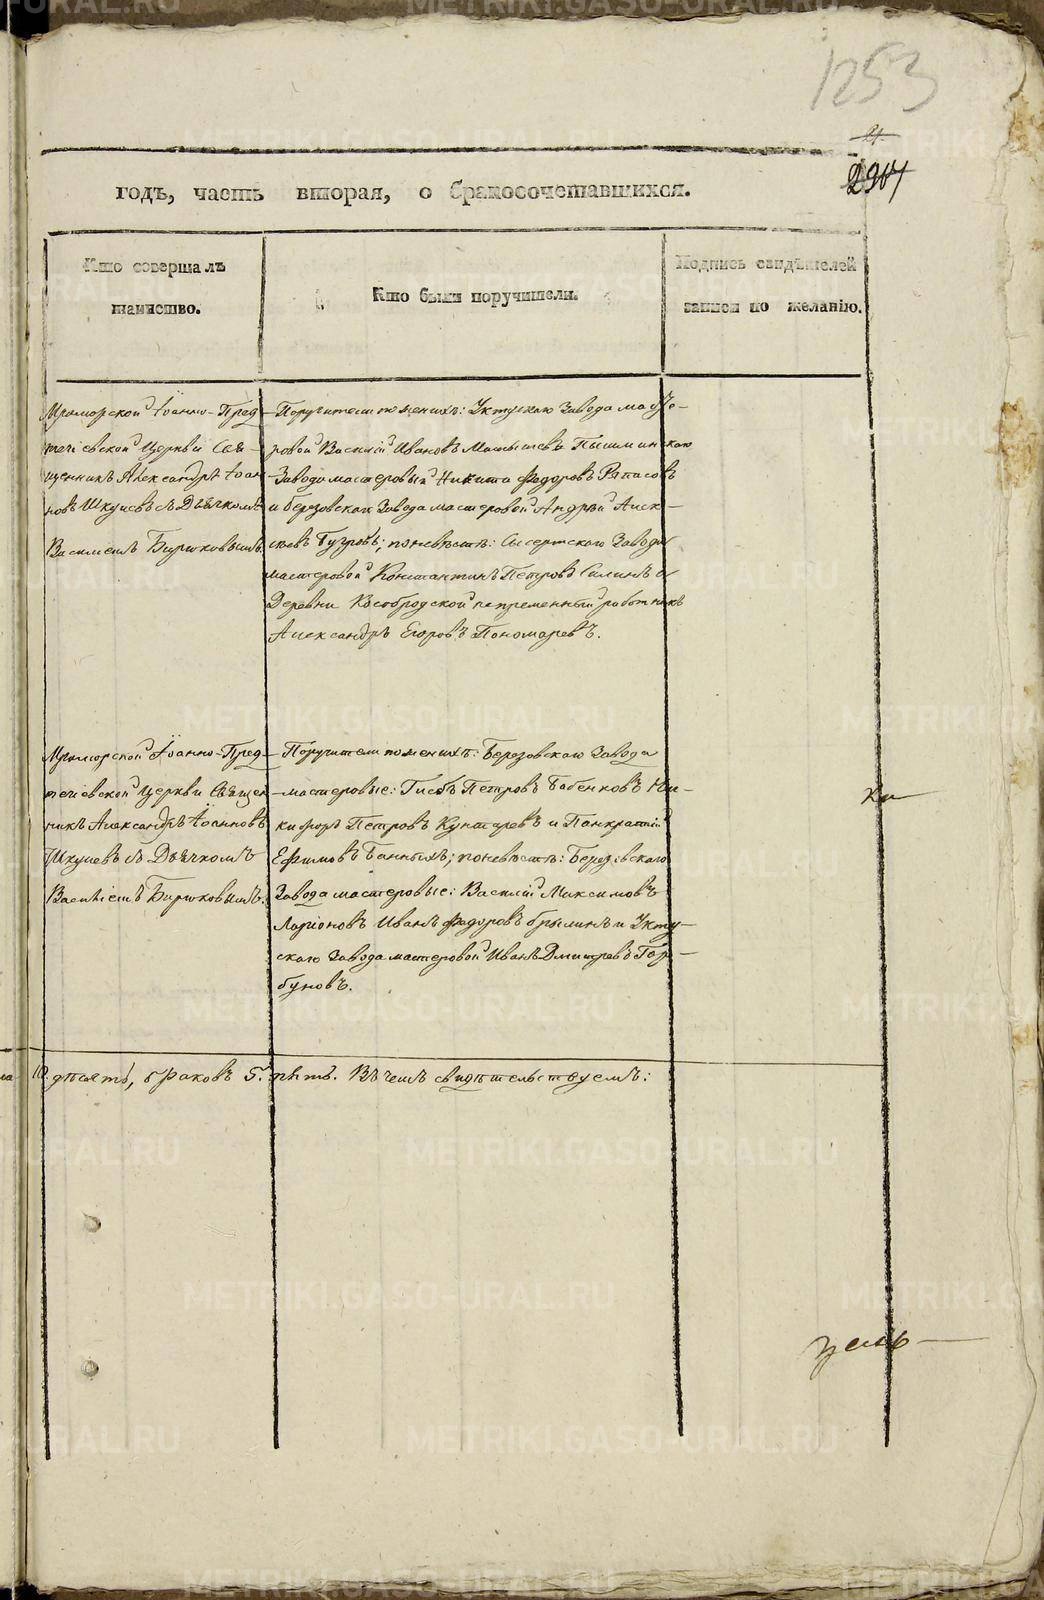 1253
21.
2967
годъ, часть вторая, о бракосочетавшихся.
Кто совершалъ
таинство.
Кто были поручители.
Подпись свидѣтелей
записи по желанію.
Мраморской Іоанно-Пред-
течіевской Церкви Свя-
щенникъ Александръ Іоан-
новъ съ Дьячкомъ
Василіемъ Бирюковымъ.
Поручители по женихѣ: Уктускаго Завода масте-
ровой Василій Ивановъ Пышминскаго
Завода мастеровый Никита Федоровъ
и Березовскаго Завода мастеровой Андрей Алек-
сѣевъ по невѣстѣ: Сысертскаго Завода
мастеровой Константинъ Петровъ Силинъ и
Деревни Кособродской непременный работникъ
Александръ Егоровъ Пономаревъ.
Мраморской Іоанно-Пред-
течіевской Церкви Священ-
никъ Александръ Іоанновъ
съ Дьячкомъ
Василіемъ Бирюковымъ.
Поручители по женихѣ: Березовскаго Завода
мастеровые: Глебъ Петровъ Бабенковъ Ни-
кифоръ Петровъ и Панкратій
Ефимовъ Банныхъ; по невѣстѣ: Березовскаго
Завода мастеровые: Василій Максимовъ
Ларіоновъ Иванъ Федоровъ и Укту-
скаго Завода мастеровой Иванъ Дмитревъ Гор-
буновъ.
10. десять, браковъ 5. пять. Въ чемъ свидѣтельствуемъ: